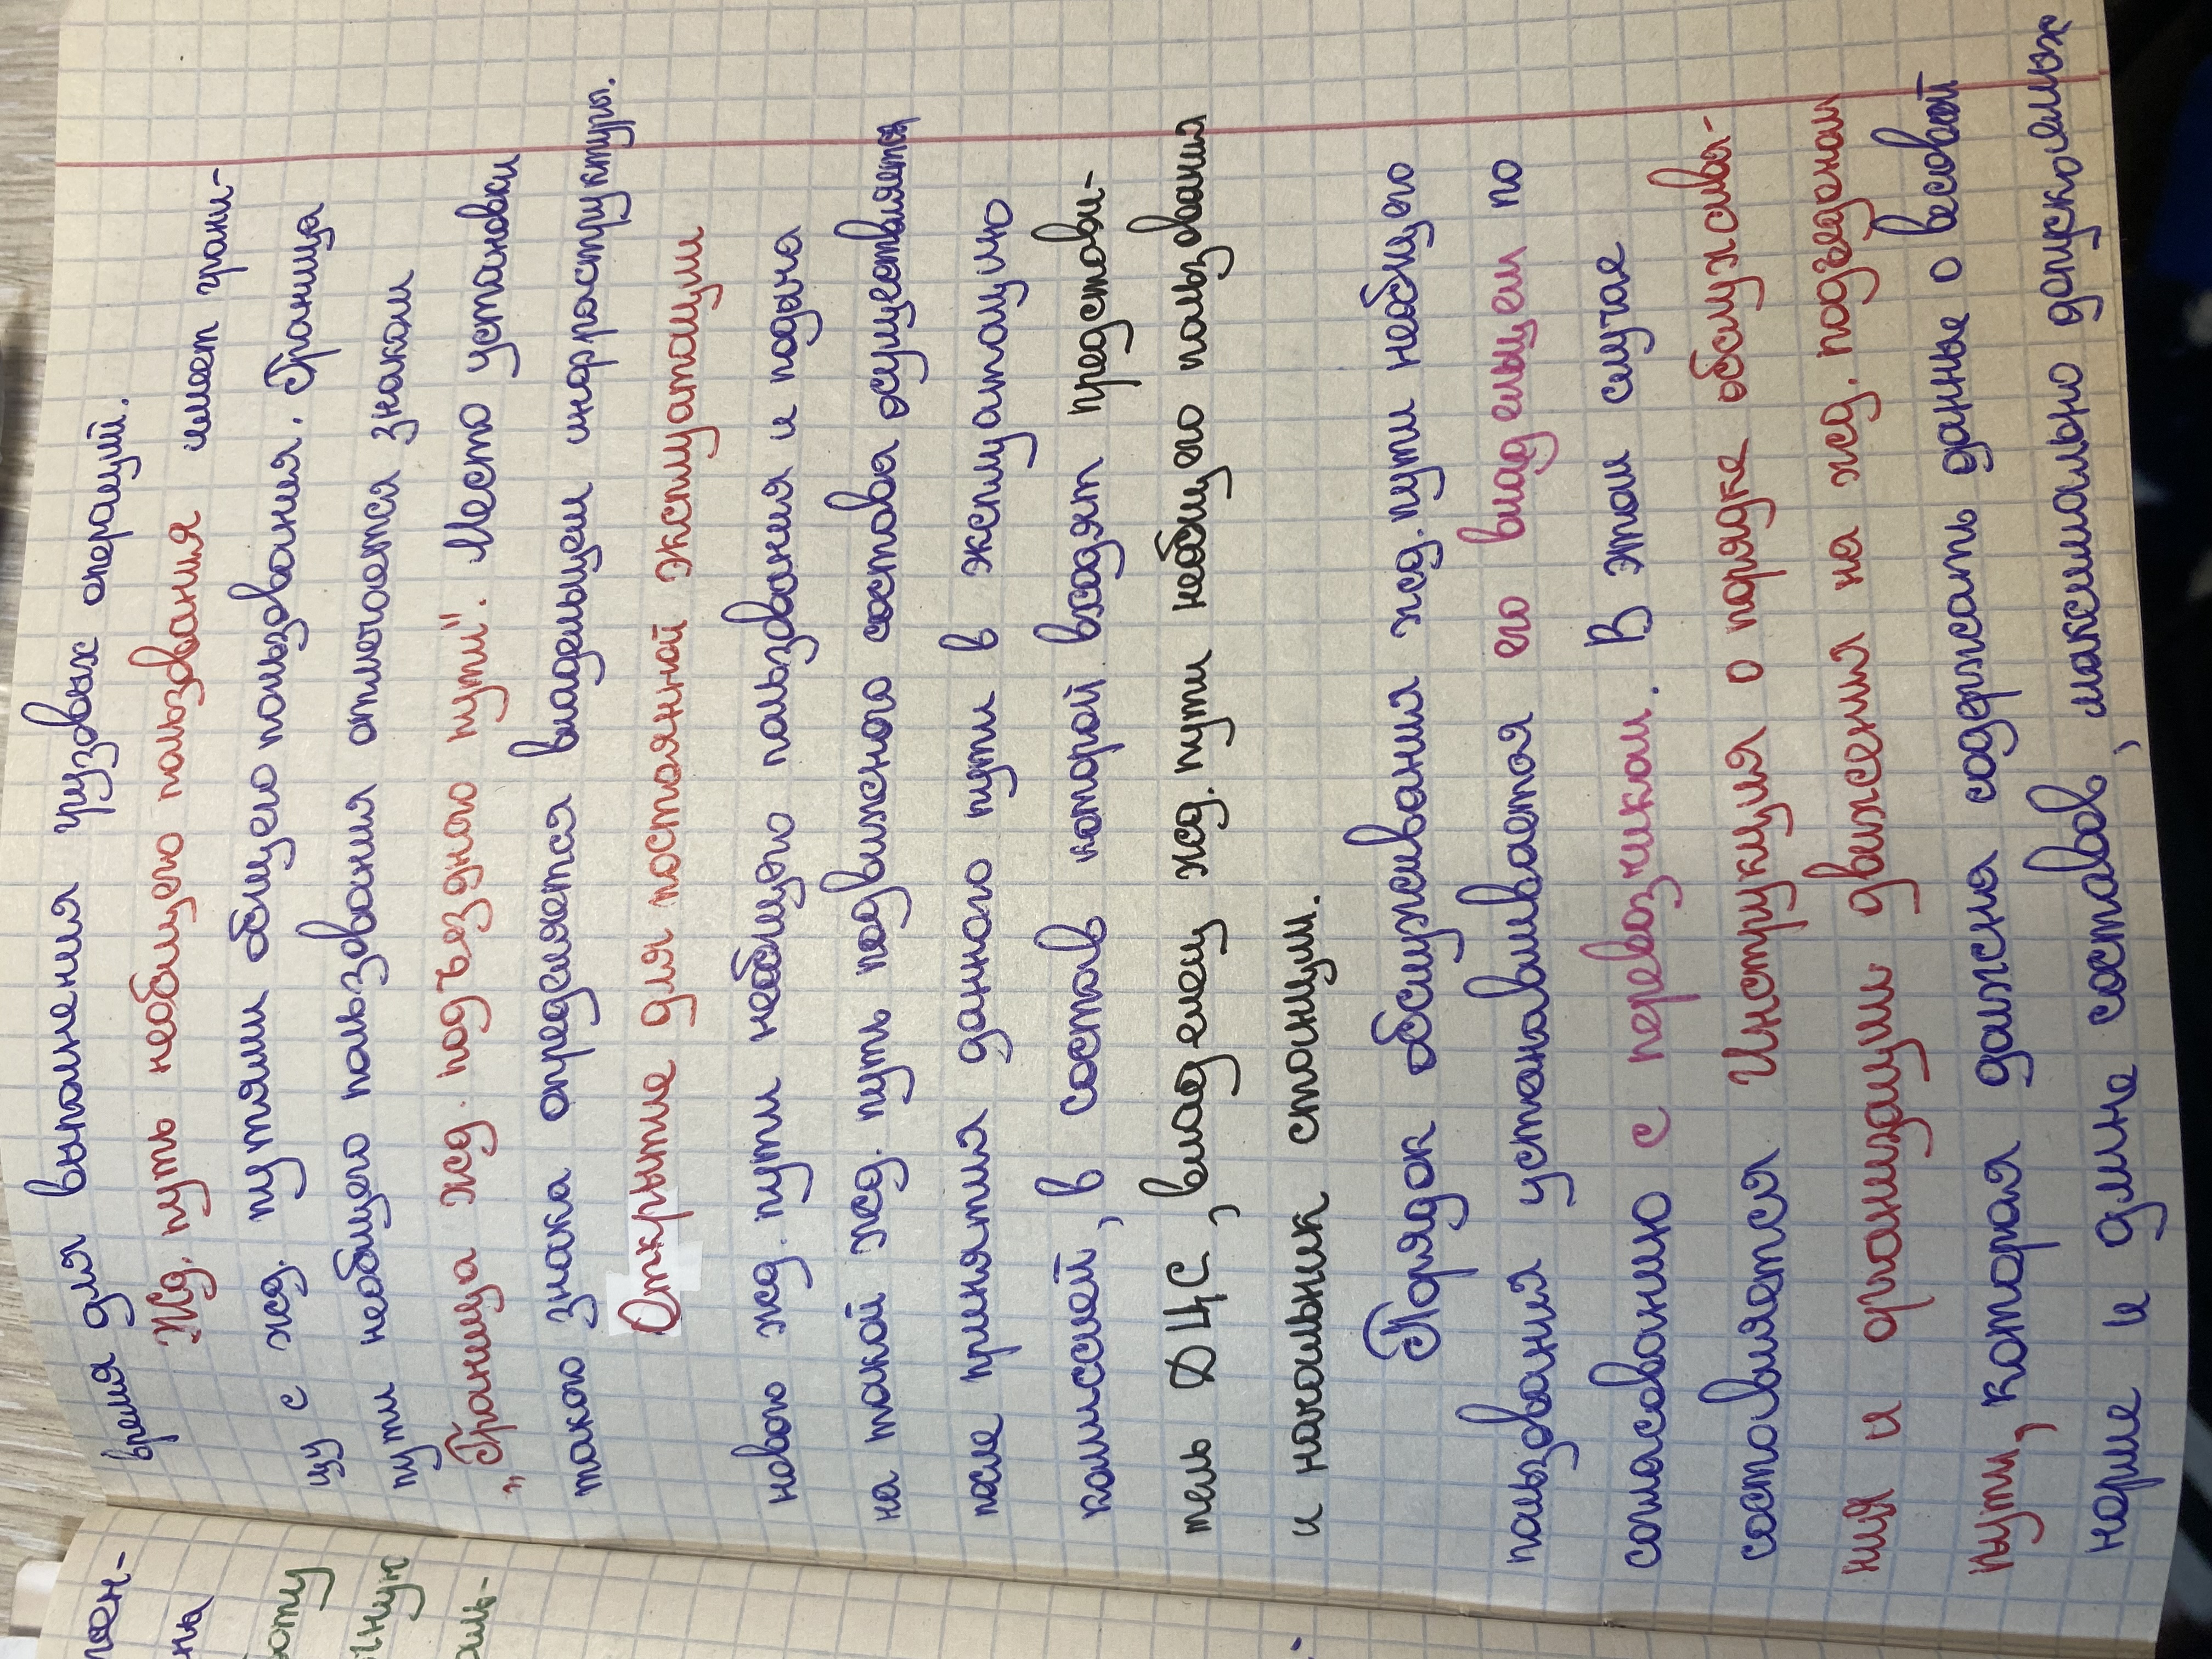 время для выполнения грузовых операций.
Жд. путь необщего пользования имеет грани-
цу с жд. путями общего пользования. Граница
пути необщего пользования отмечается знаком
„Граница жд. подъездного пути". Место установки
такого знака определяется владельцем инфраструктуры.
Открытие для постоянной эксплуатации
нового жд. пути необщего пользования и подача
на такой жд. путь подвижного состава осуществляется
после принятия данного пути в эксплуатацию
комиссией, в состав которой входят представи-
тель ДЦС, владелец жд. пути необщего пользования
и начальник станции.
Порядок обслуживания жд. пути необщего
пользования устанавливается его владельцем по
согласованию с перевозчиком. В этом случае
составляется Инструкция о порядке обслужива-
ния и организации движения на жд. подъездном
пути, которая должна содержать данные о весовой
норме и длине составов, максимально допускаемых